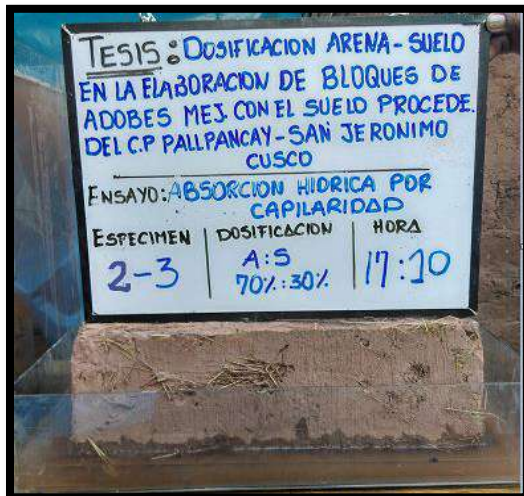 TESIS: DOSIFICACION ARENA - SUELO
EN LA ELABORACION DE BLOQUES DE
ADOBES MEJ. CON EL SUELO PROCEDE.
DEL C.P PALLPANCAY - SAN JERONIMO
CUSCO
ENSAYO: ABSORCION HIDRICA POR
CAPILARIDAD
ESPECIMEN DOSIFICACION HORA
2-3 A:S 17:10
70%:30%